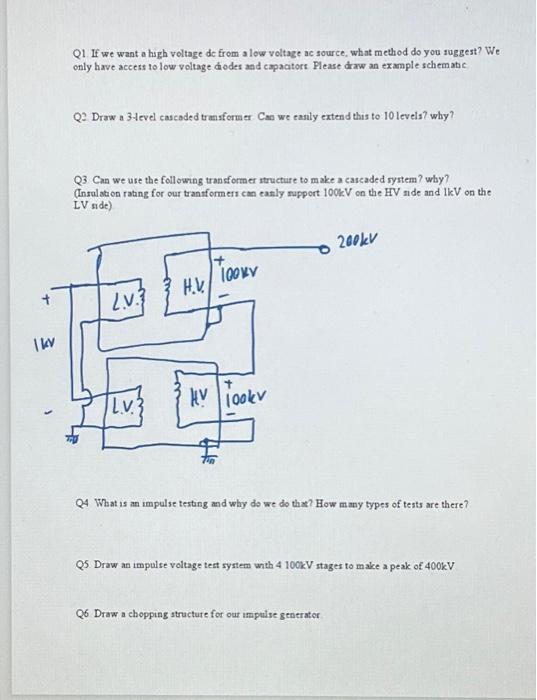 Q1 If we want a high voltage dc from a low voltage ac source, what method do you suggest? We
only have access to low voltage diodes and capacitors. Please draw an example schematic.
Q2 Draw a 3-level cascaded transformer. Can we easily extend this to 10 levels? why?
Q3 Can we use the following transformer structure to make a cascaded system? why?
(Insulation rating for our transformers can easily support 100kV on the HV side and 1kV on the
LV side)
200kV
+
100kV
-
H.V.
L.V.
+
1kV
-
L.V.
HV
+
100kV
-
Q4 What is an impulse testing and why do we do that? How many types of tests are there?
Q5 Draw an impulse voltage test system with 4 100kV stages to make a peak of 400kV
Q6 Draw a chopping structure for our impulse generator